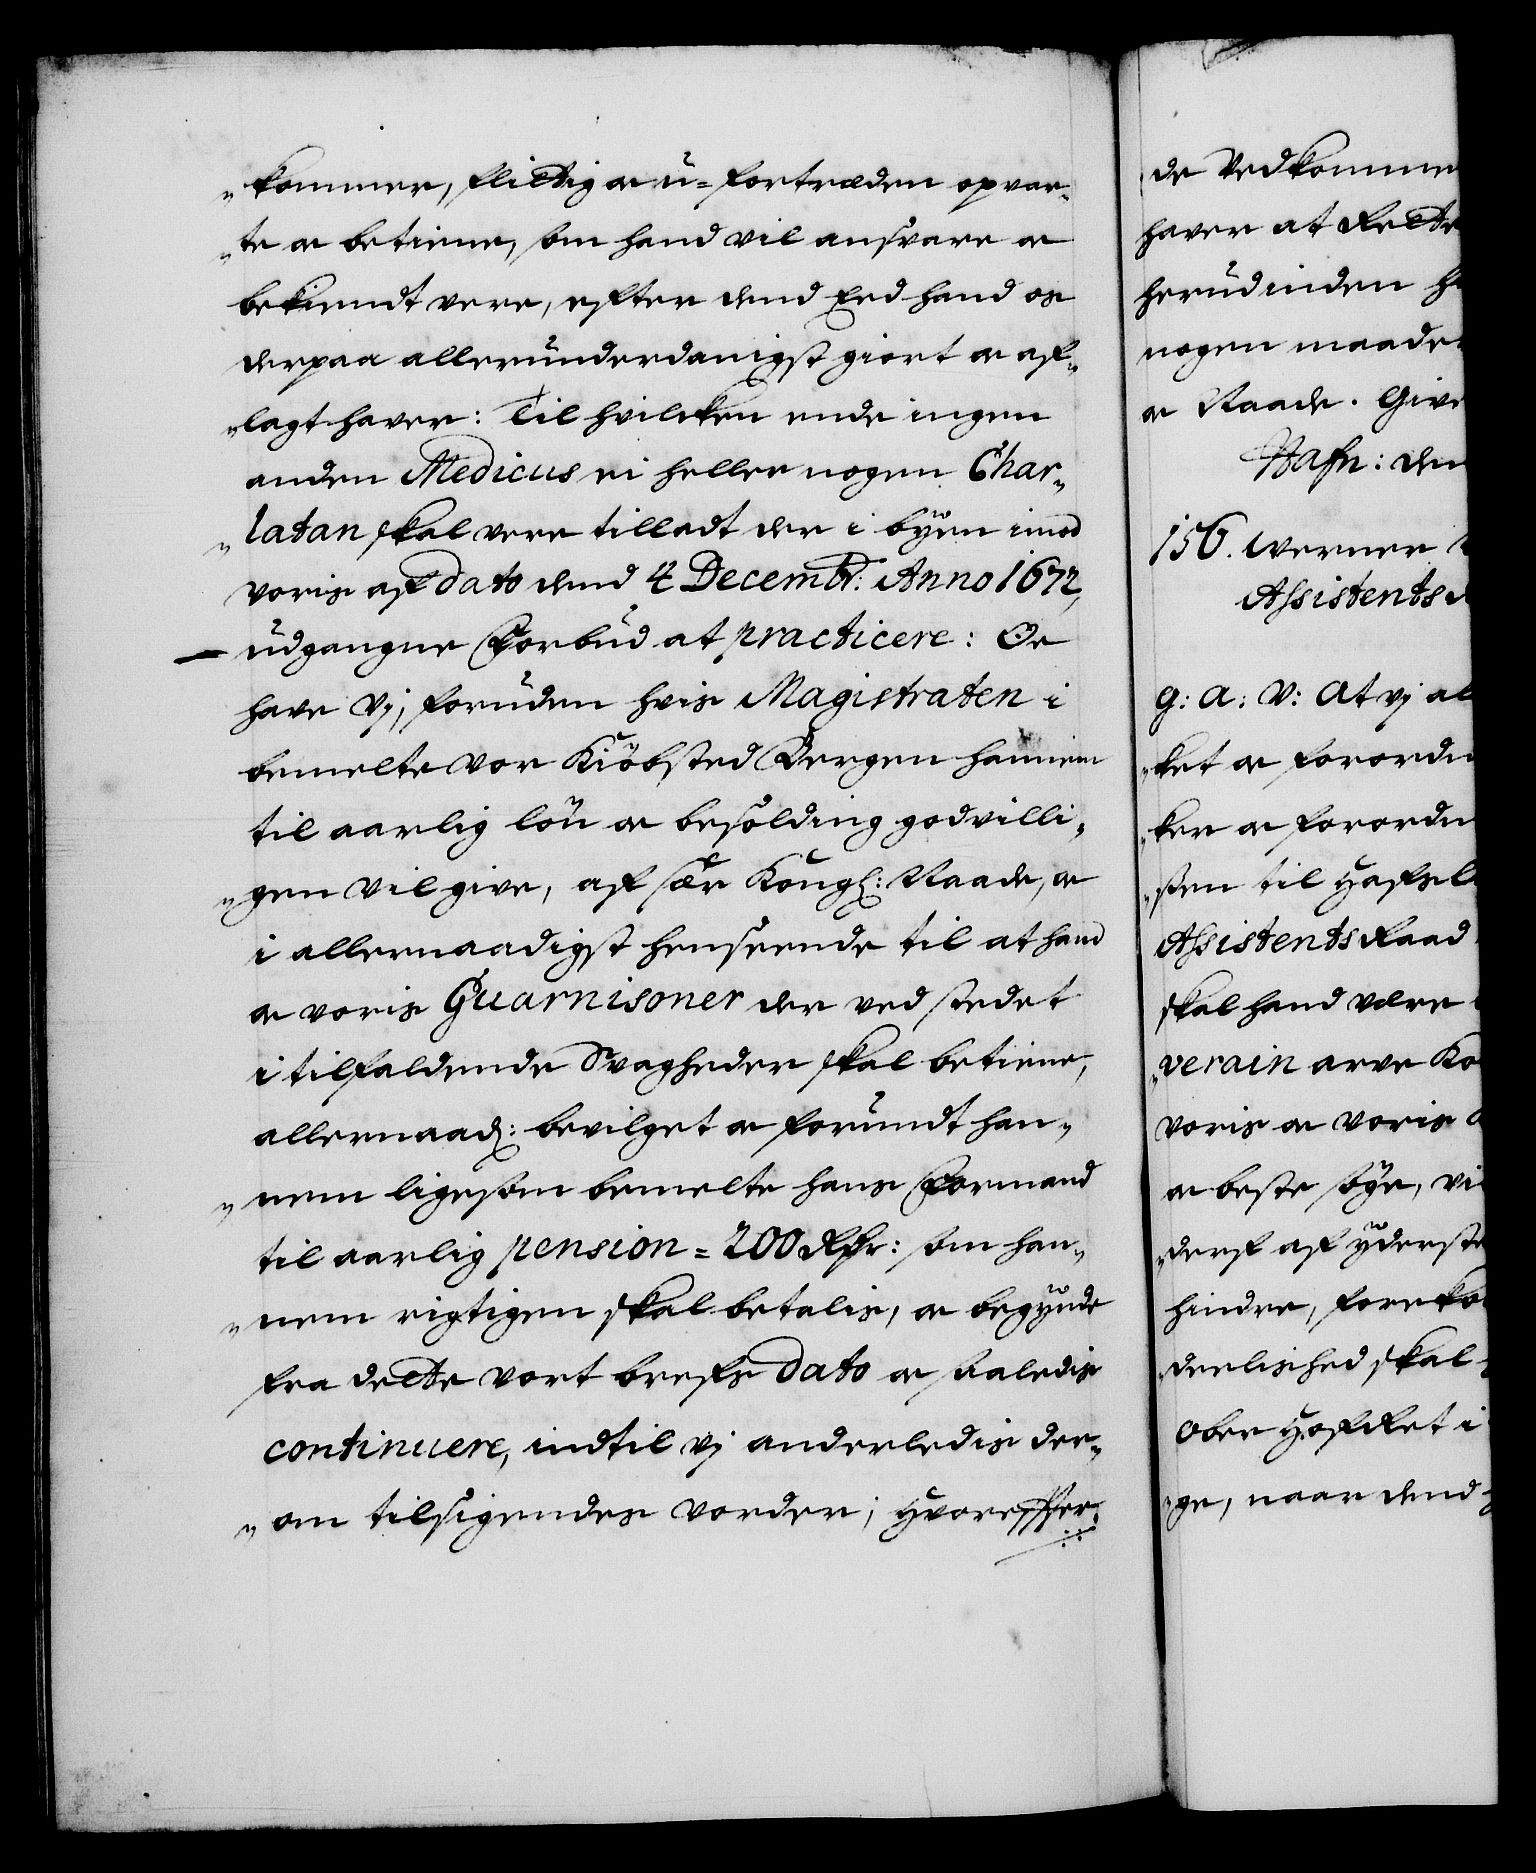 „kommer, flittig oc u-fortræden opvar„
„te oc betiene, som hand vil ansvare oc
bekiendt vere, efter dend Eed hand os
derpaa allerunderdanigst giort oc af„
„lagt haver: Til hvilcken ende ingen
anden Medicus ei heller nogen Char„
„latan skal vere tilladt der i byen imod
voris af dato dend 4 Decembr: Anno 1672,
udgangne Forbud at practicere: Oc
have Vj, foruden hvis Magistraten i
bemelte vor Kiöbsted Bergen hannem
til aarlig lön oc besolding godvilli„
„gen vil give, af sær Kongl: Naade, oc
i allernaadigst henseende til at hand
oc voris Guarnisoner der ved stedet
i tilfaldende Svagheder skal betiene,
allernaad: bevilget oc forundt han„
„nem ligesom bemelte hans Formand
til aarlig pension = 200 Rdr: som han„
„nem rigtigen skal betalis, oc begynde
fra dette vort brefs dato oc saaledis
continuere, indtil vj anderledis der„
„om tilsigendes vorder; Hvorefter
de Vedkomme
haver at Rette
herudinden h
nogen maade
oc Naade. Give
Hafn: den
156. Werner
Assistents
G: A: V: At vj al
„ket oc forordn
„ker oc forordn
„sten til Hofsl
Assistents Raad
skal hand være
„verain arve Ko
voris oc voris
oc beste söge, vi
„derf af yderste
hindre, foreko
„deelished skal
Ober HofRet i
„ge, naar dend